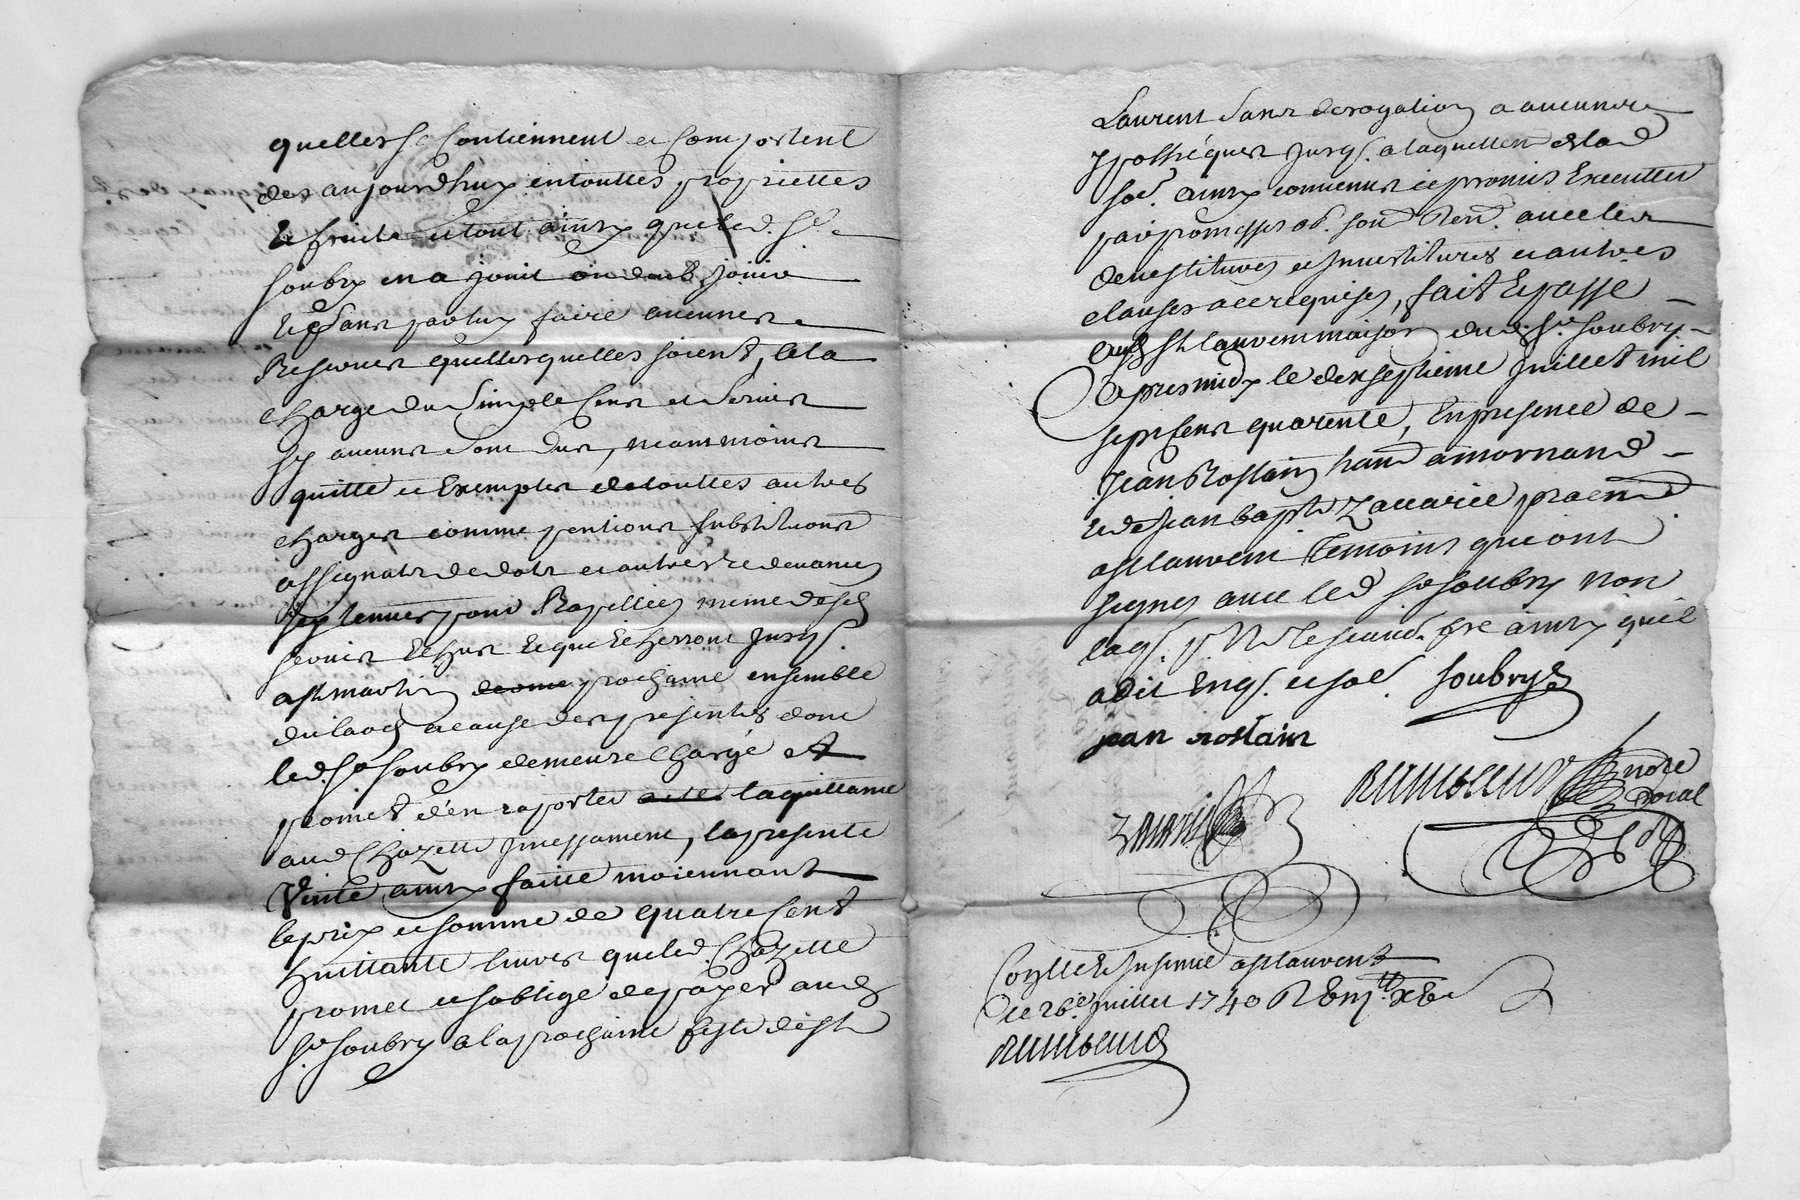 quelles se contiennent et comportent
des aujourdhuy en touttes proprietes
et fruits et tout ainsy que led. Sr.
Soubry en a jouit ou deub joüir
et sans par luy faire aucunes
Reserves quelles quelles soient, a la
charge du simple cens et servis
sy aucuns sont dus, neammoins
quitte et Exempter de touttes autres
charges comme pentions substitutions
assignats de dots et autres redevances
mime desd
servis Echus et qui Echerront jusq.
a st martin prochaine ensemble
du laod a cause des presentes dont
led. Sr Soubry demeure chargé et
promet d'en raporter la quittance
aud Chazette incessament, la presente
Vente ainsy faitte moiennant
le prix et somme de quatre cent
huittante livres que led. Chazette
promet et soblige de payer aud
Sr. Soubry a la prochaine feste de st
Laurent sans derogation a aucunes
ypothéques jusq. a laquelle
ainsy convenus et promis Executter
par promesses ob. soud Ren. avec les
devestitures et investitures et autres
clauses a ce requises, fait et passé
aud St laurent maison dud. Sr Soubry
apres midy le dixseptieme juillet mil
sept cens quarente, En presence de
Jean Rostain hand a mornand
et de jean bapte Zacarie praend
a st laurent temoins qui ont
signés avec led Sr Soubry non
ainsy quil
a dit Enq. et so. Soubry
jean rostain
Zacarie
nore
roial
Controllé et insinué a st laurent
Le 26e. juillet 1740 R